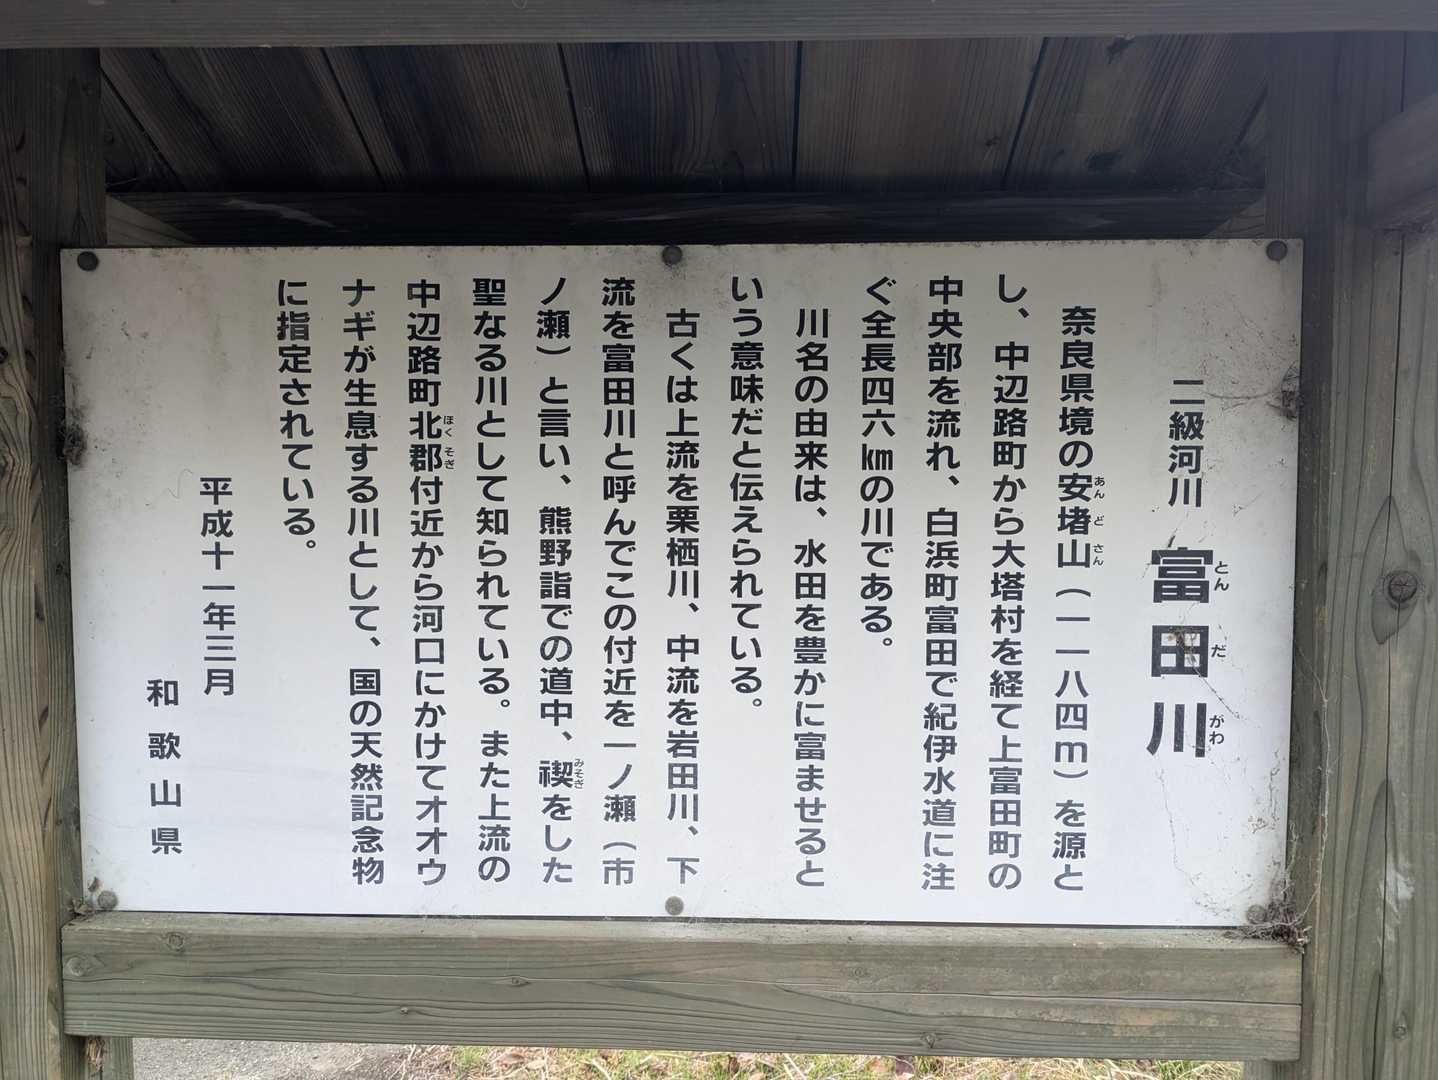 二級河川 富田川
とんだがわ
奈良県境の安堵山（一一八四ｍ）を源と
あんどさん
し、中辺路町から大塔村を経て上富田町の
中央部を流れ、白浜町富田で紀伊水道に注
ぐ全長四六㎞の川である。
川名の由来は、水田を豊かに富ませると
いう意味だと伝えられている。
古くは上流を栗栖川、中流を岩田川、下
流を富田川と呼んでこの付近を一ノ瀬（市
ノ瀬）と言い、熊野詣での道中、禊をした
みそぎ
聖なる川として知られている。また上流の
中辺路町北郡付近から河口にかけてオオウ
ほくそぎ
ナギが生息する川として、国の天然記念物
に指定されている。
平成十一年三月
和歌山県